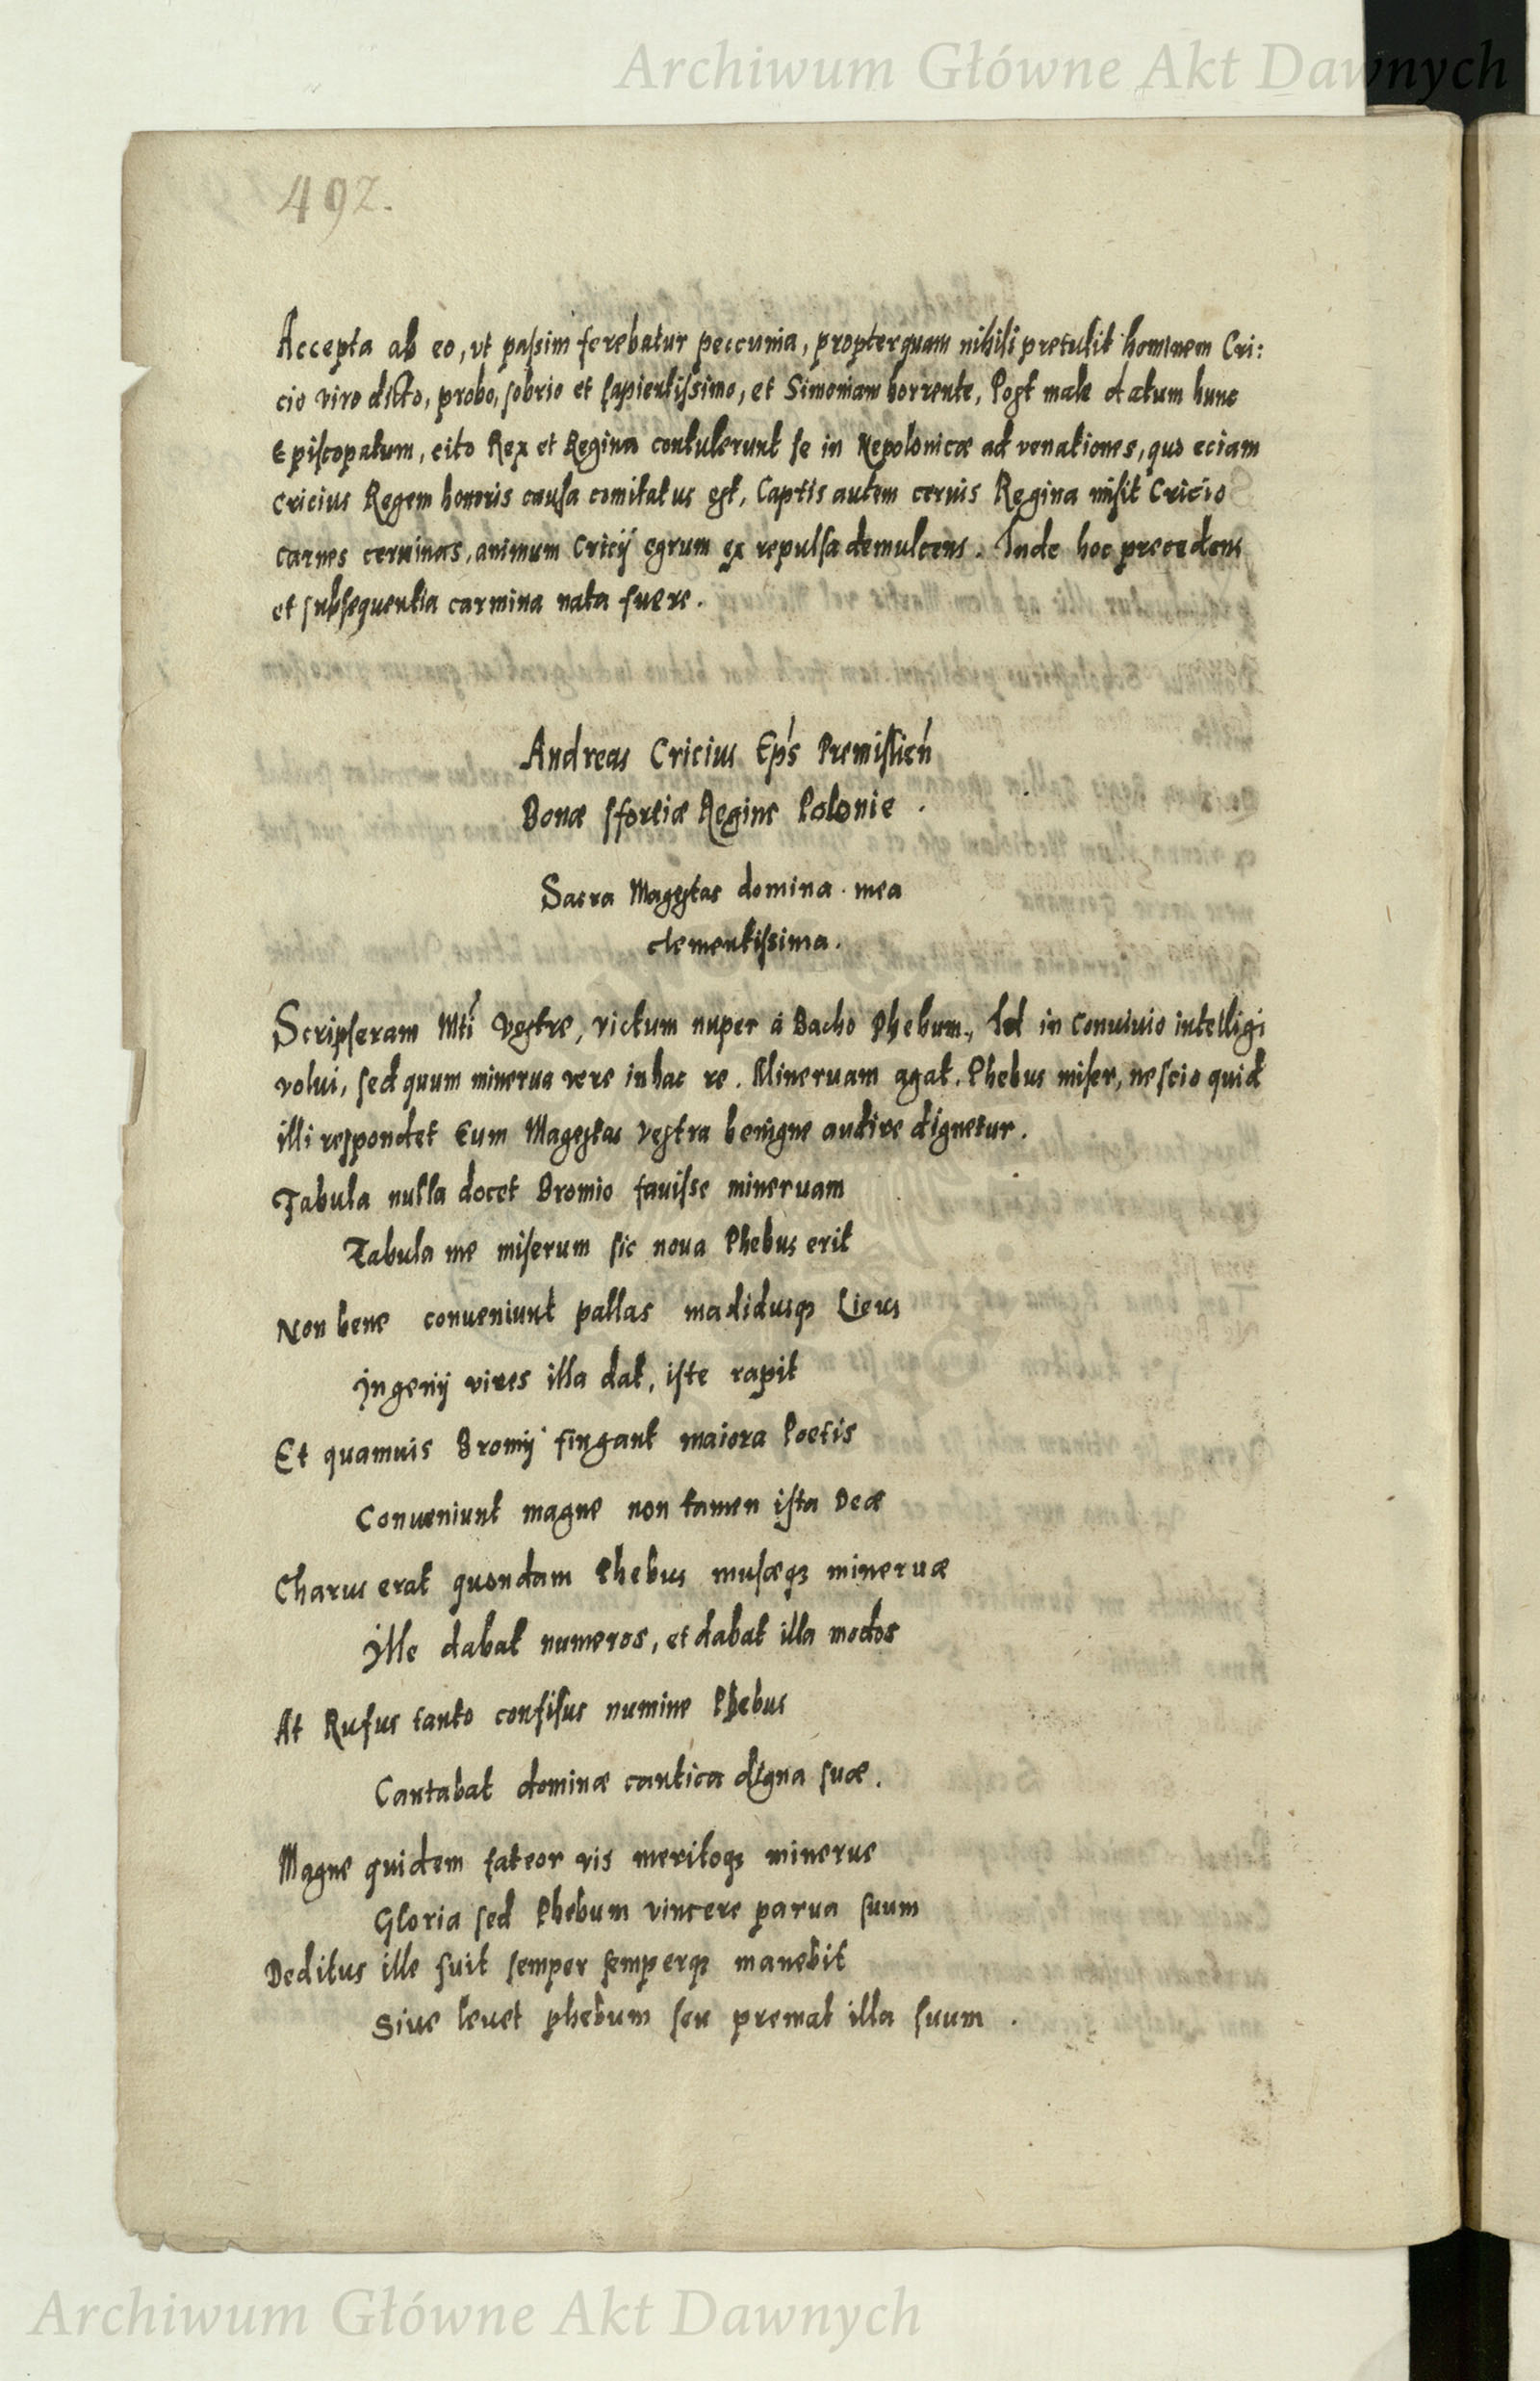 Archiwum Główne Akt Dawnych
492.
Accepta ab eo, vt passim ferebatur peccunia, propterquam nihili pretulit hominem Cri:
cio viro dicto, probo, sobrio et sapientissimo, et Simoniam horrente, Post male datum hunc
Episcopatum, cito Rex et Regina contulerunt se in Nepolonicæ ad venationes, quo eciam
Cricius Regem honoris causa comitatus est, Captis autem ceruis Regina misit Cricio
carnes ceruinas, animum Cricij egrum ex repulsa demulcens. Inde hoc precedens
et subsequentia carmina nata fuere.
Andreas Cricius Ep's Premislien'
Bonæ sfortiæ Regine Polonie.
Sacra Magestas domina mea
clementissima.
Scripseram Mti Vestre, victum nuper à Bacho Phebum, sed in Conuiuio intelligi
volui, sed quum minerua vere in hac re. Mineruam agat. Phebus miser, nescio quid
illi respondet Eum Magestas Vestra benigne audire dignetur.
Fabula nulla docet Bromio fauisse mineruam
Fabula me miserum sic noua Phebus erit
Non bene conueniunt pallas madidusq3 Lieus
Ingenij vires illa dat, iste rapit
Et quamuis Bromij fingant maiora Poetis
Conueniunt magne non tamen ista Deæ
Charus erat quondam Phebus musæq3 mineruæ
Ille dabat numeros, et dabat illa modos
At Rufus tanto confisus numine Phebus
Cantabat dominæ cantica digna suæ.
Magne quidem fateor vis meritoq3 minerue
Gloria sed Phebum vincere parua suum
Deditus ille fuit semper semperq3 manebit
Siue leuet phebum seu premat illa suum.
Archiwum Główne Akt Dawnych